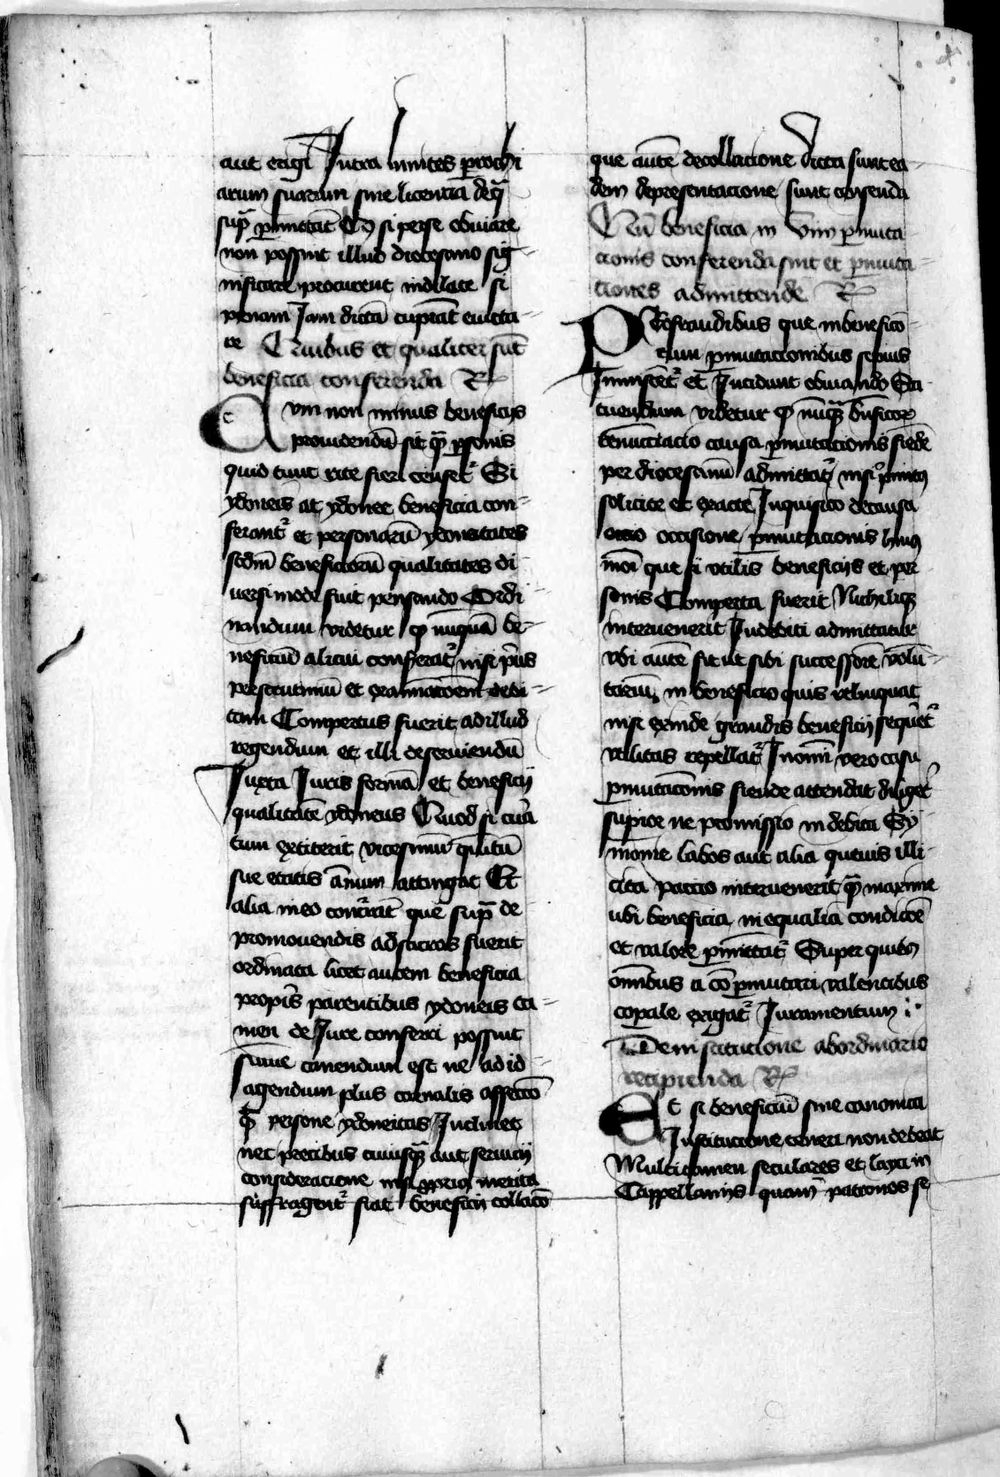 aut erigi Intra limites prochi
arum suarum sine licentia de qua
supra permittant Quod si per se obviare
non possint illud diocesano sig-
nificare procurent indilate si
penam Iam dictam cupiant euita-
re Quibus et qualiter sunt
beneficia conferenda R
Cum non minus beneficijs
prouidendum sit quam personis
quid tunc rite fieri censetur Si
ydoneis ac ydonee beneficia con-
ferantur et personarum ydoneitates
secundum beneficiorum qualitates di
uersimode sint pensando Ordi
nandum videtur quod nunquam be-
neficium alicui conferatur nisi prius
per scrutinium et examinacionem debi-
tam Compertus fuerit ad illud
regendum et illi deseruiendum
Iuxta Iuris formam et beneficij
qualitatem ydoneus Quod si cura
tum extiterit vicesimum quintum
sue etatis annum attingat Et
alia in eo concurrant que supra de
promouendis ad sacros fuerit
ordinata licet autem beneficia
proprijs parentibus ydoneis ta-
men de Iure conferri possint
summe cauendum est ne ad id-
agendum plus carnalis affectio
quam persone ydoneitas Inclinet
nec precibus cuiusquam aut seruicij
consideracione nisi propria merita
suffragentur fiat beneficij collacio
que autem de collacione dicta sunt ea-
dem de presentacione sunt censenda
Cum beneficia in vim permuta
cionis conferenda sint et permuta-
ciones admittende R
Pro fraudibus que in benefico-
rum permutacionibus sepius
Inmiscentur et Incidunt obuiando Sta
tuendum videtur quod nunquam beneficiorum
renunciacio causa permutacionis fiende
per diocesanum admittatur nisi primitus
solicite et exacte Inquisito de causa
occasione permutacionis huius
modi que si vtilis beneficijs et per
sonis Comperta fuerit Nichilque
interuenerit Indebiti admittatur
vbi autem sit ut sibi successorem volun-
tarium in beneficio quis relinquat
nisi exinde grandis beneficij sequeretur
vtilitas repellatur In omni vero casu
permutacionis fiende attendat diligenter
superior ne promissio indebita Sy
monie labes aut alia queuis illi
cita pactio interuenerit quam maxime
ubi beneficia inequalia condicione
et valore permittantur Super quibus
omnibus a compermutari valentibus
corporale exigatur Iuramentum
De institucione ab ordinario
recipienda R
Et si beneficium sine canonica
Institucione teneri non debeat
Multi tamen seculares et layci in
Cappellanijs quarum patronos se